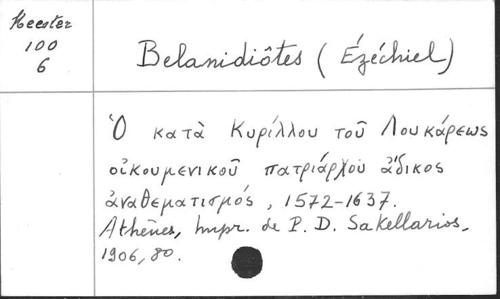 Meester
100
6
Belanidiôtes (Ézéchiel)
Ὁ κατὰ Κυρίλλου τοῦ Λουκάρεως
οἰκουμενικοῦ πατριάρχου ἄδικος
ἀναθεματισμός, 1572-1637.
Athènes, Impr. de P. D. Sakellarios,
1906, 80.